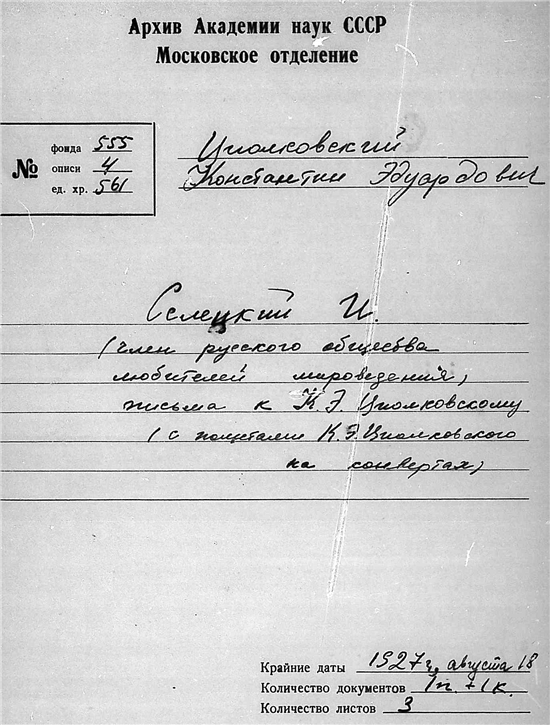 Архив Академии наук СССР
Московское отделение
№
фонда 555
описи 4
ед. хр. 561
Циолковский
Константин Эдуардович
Селецкий И.
(член русского общества
любителей мироведения)
письма к К.Э. Циолковскому
(с пометами К.Э. Циолковского
на конвертах)
Крайние даты 1927 г. августа 18
Количество документов 1п. + 1к.
Количество листов 3